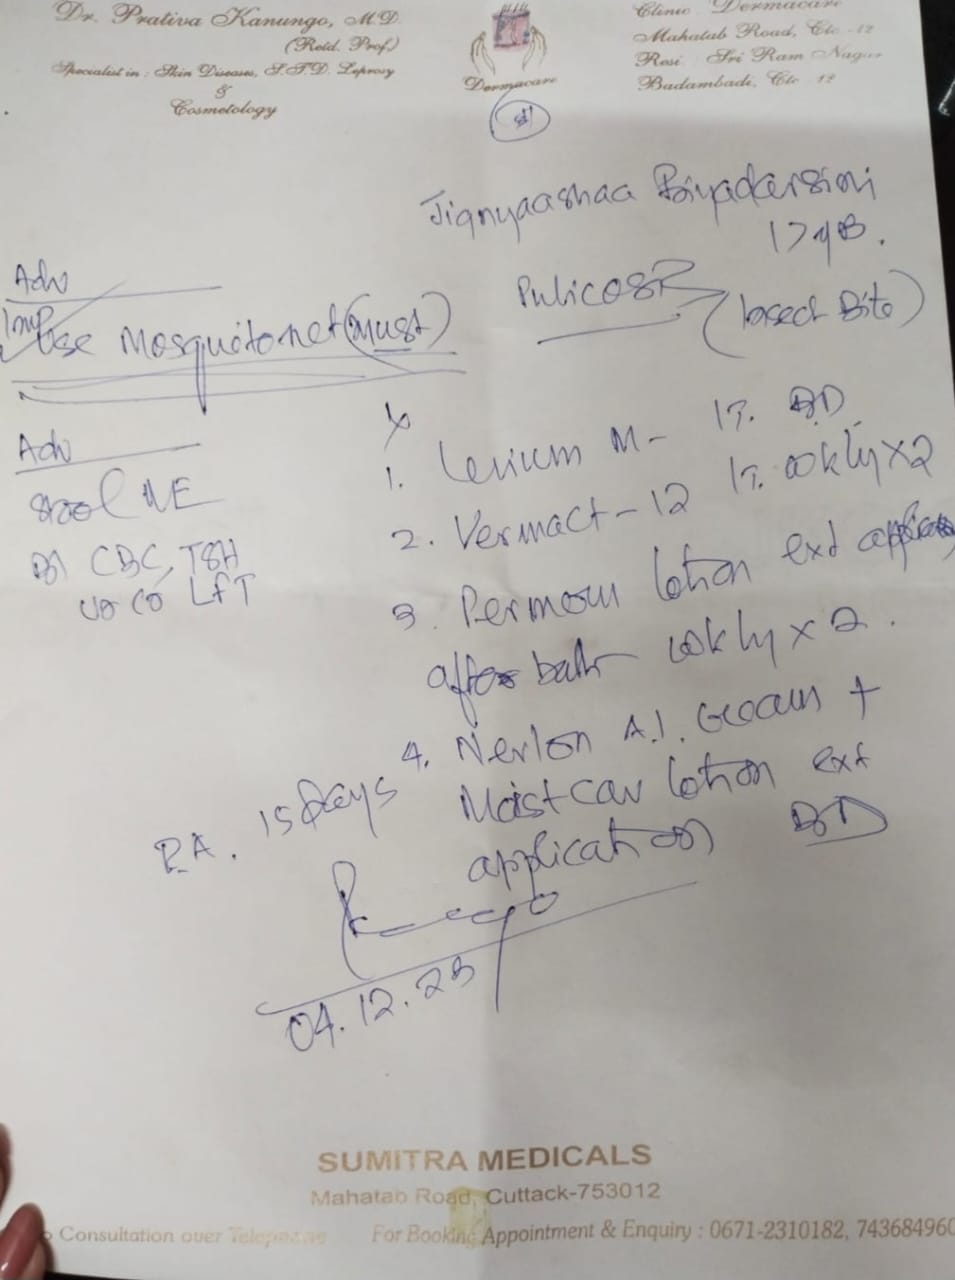 Dr. Prativa Kanungo, M.D.
(Retd. Prof.)
Specialist in : Skin Diseases, S.T.D. Leprosy
&
Cosmetology
Dermacare
Clinic Dermacare
Mahatab Road, Ctc -12
Resi Sri Ram Nagar
Badambadi, Ctc 12
Jignyaashaa Priyadarsini
17 yrs.
Adv
Imp
Use Mosquito net (Must)
(Insect Bite)
Adv
Stool
CBC, TSH
LFT
1. M - 1T. BD
2. Vermact - 12 1T. wkly x 2
3. lotion ext application
after bath wkly x 2.
4. cream +
lotion ext
application BD
15 days
04.12.23
SUMITRA MEDICALS
Mahatab Road, Cuttack-753012
Consultation over Telephone
For Booking Appointment & Enquiry : 0671-2310182, 743684960